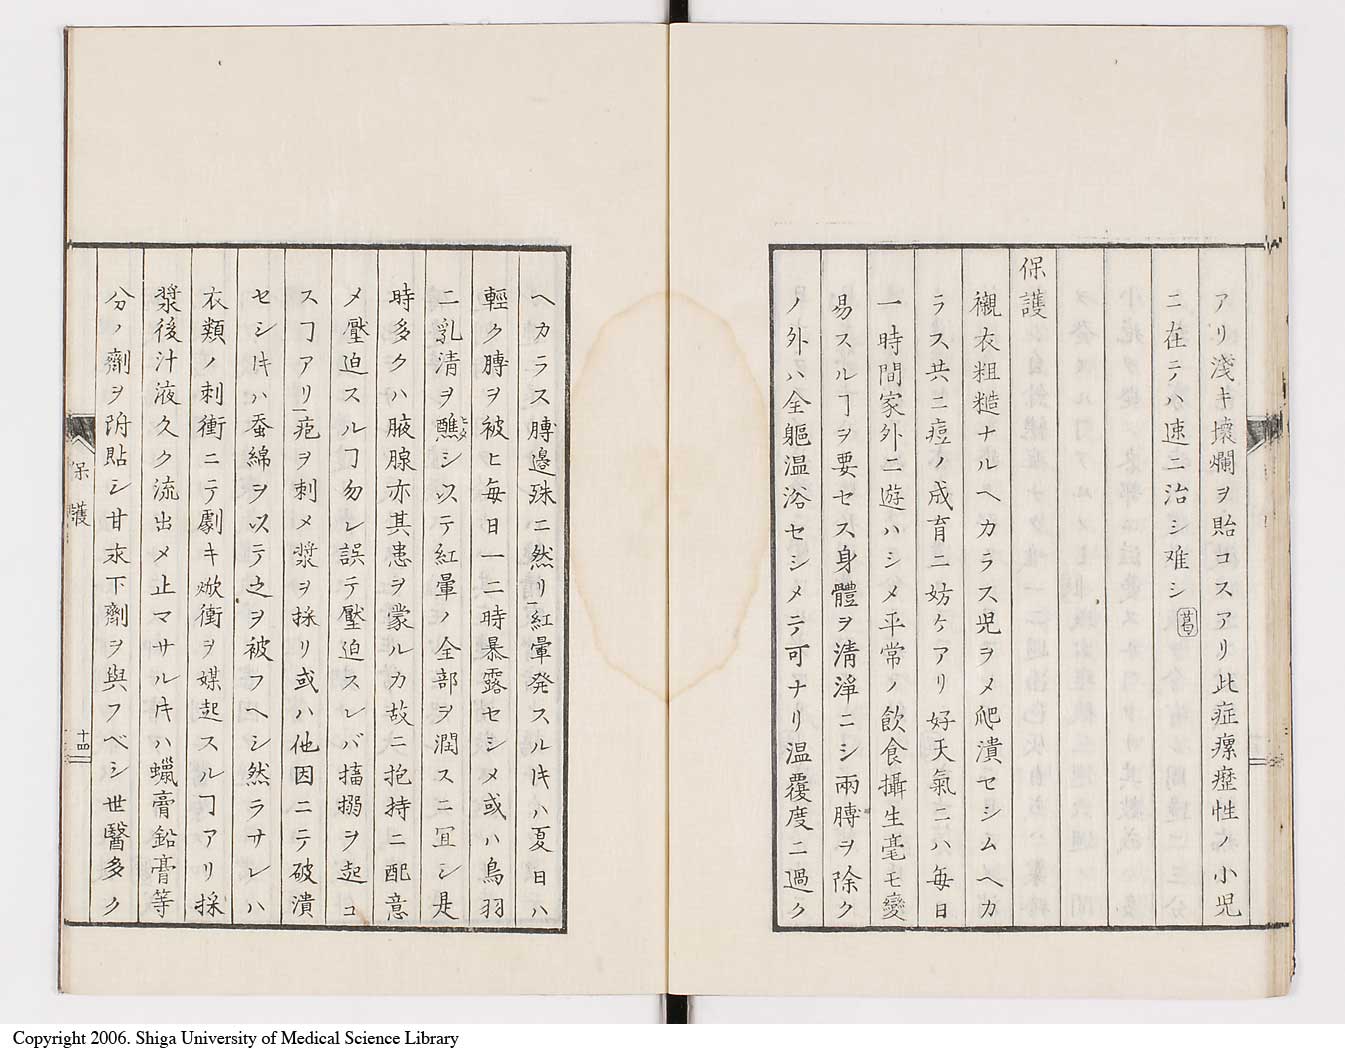 アリ淺キ壊爛ヲ貽コスアリ此症瘰癧性ノ小児
ニ在テハ速ニ治シ难シ 葛
保護
襯衣粗糙ナルヘカラス児ヲメ爬潰セシムヘカ
ラス共ニ痘ノ成育ニ妨ケアリ好天氣ニハ毎日
一時間家外ニ遊ハシメ平常ノ飲食攝生毫モ變
易スルヿヲ要セス身體ヲ清淨ニシ兩膊ヲ除ク
ノ外ハ全軀温浴セシメテ可ナリ温覆度ニ過ク
ヘカラス膊邉殊ニ然リ紅暈発スルキハ夏日ハ
輕ク膊ヲ被ヒ毎日一二時暴露セシメ或ハ鳥羽
ニ乳清ヲ醮シ以テ紅暈ノ全部ヲ潤スニ冝シ是
ヒタ
時多クハ腋腺亦其患ヲ蒙ルカ故ニ抱持ニ配意
メ壓迫スルヿ勿レ誤テ壓迫スレバ搐搦ヲ起コ
スヿアリ疱ヲ刺メ漿ヲ採リ或ハ他因ニテ破潰
セシ𪜈ハ蚕綿ヲ以テ之ヲ被フヘシ然ラサレハ
衣類ノ刺衝ニテ劇キ焮衝ヲ媒起スルヿアリ採
漿後汁液久ク流出メ止マサル𪜈ハ蠟膏鉛膏等
分ノ劑ヲ附貼シ甘汞下劑ヲ與フベシ世醫多ク
保護
十四
Copyright 2006. Shiga University of Medical Science Library